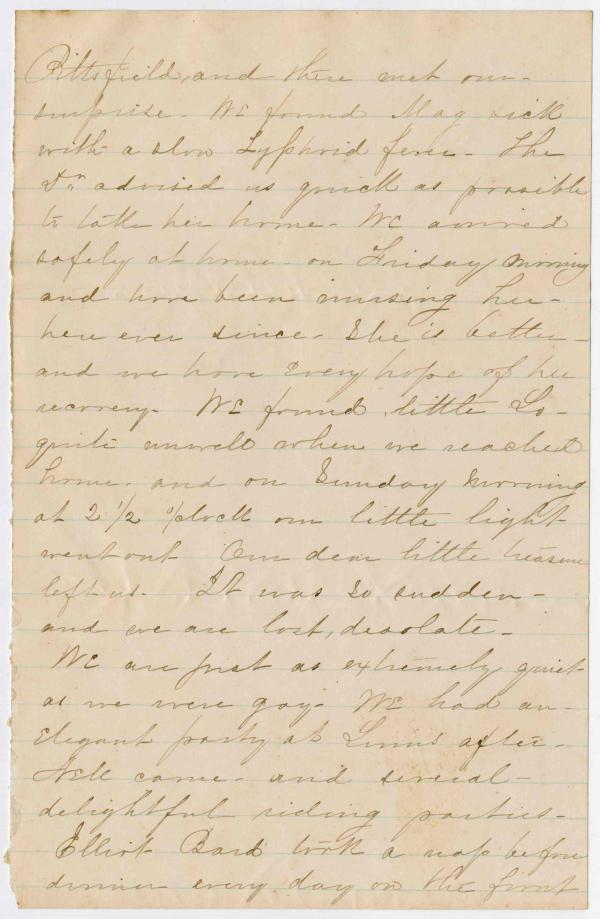 Pittsfield, and there met our
surprise - We found Mag sick
with a slow Typhoid fever - The
Dr. advised us quick as possible
to take her home - We arrived
safely at home - on Friday morning
and have been nursing her -
here ever since - She is better -
and we have every hope of her
recovery - We found little Lo -
quite unwell when we reached
home - and on Sunday morning
at 2 1/2 o'clock our little light
went out Our dear little treasure
left us - It was so sudden -
and we are lost, desolate -
We are just as extremely quiet
as we were gay - We had an
Elegant party at after -
Nell came - and several -
delightful riding parties -
Elliot Bard took a nap before
dinner every day on the front